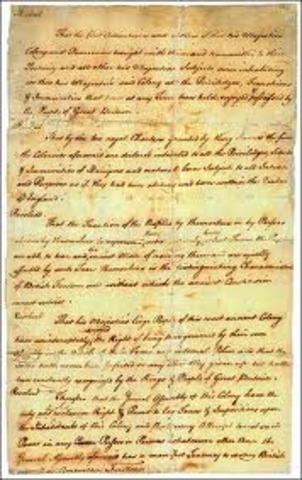 Resolved
That the first Adventurers and Settlers of this his Majesties
Colony and Dominion brought with them and transmitted to their
Posterity and all other his Majesties Subjects since inhabiting
in this his Majesties said Colony all the Priviledges, Franchises
& Immunities that have at any Time been held, enjoyed, & possessed by
the People of Great Britain.
That by the two royal Charters granted by King James the first
the Colonists aforesaid are declared intituled to all the Priviledges, Liberties
& Immunities of Denizens and natural born Subjects to all Intents
and Purposes as if they had been abiding and born within the Realm
of England.
Resolved
That the Taxation of the People by themselves or by Persons
are equally
affected by such Taxes Themselves is the distinguishing Characteristic
of British Freedom and without which the ancient Constitution
cannot subsist.
Resolved
That his Majesties liege People of this most ancient Colony
have uninterruptedly the Right of being thus governed by their own
Assembly in the Article of their Taxes and internal Police and that the
been constantly recognized by the Kings & People of Great Britain.
Resolved
Therefore that the General Assembly of this Colony have the
only and exclusive Right & Power to lay Taxes & Impositions upon
the Inhabitants of this Colony and that every Attempt to vest such
Power in any Person or Persons whatsoever other than the
General Assembly aforesaid has a manifest Tendency to destroy British
as well as American Freedom.